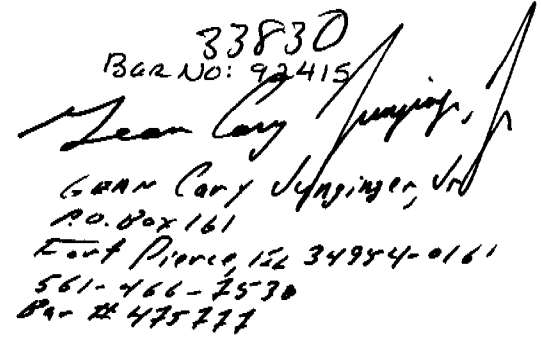 33830
Bar No: 92415
Gean Cary Junginger, Jr
GEAN Cary Junginger, Jr
P.O. Box 161
Fort Pierce, FL 34954-0161
561-466-7530
Bar # 475777